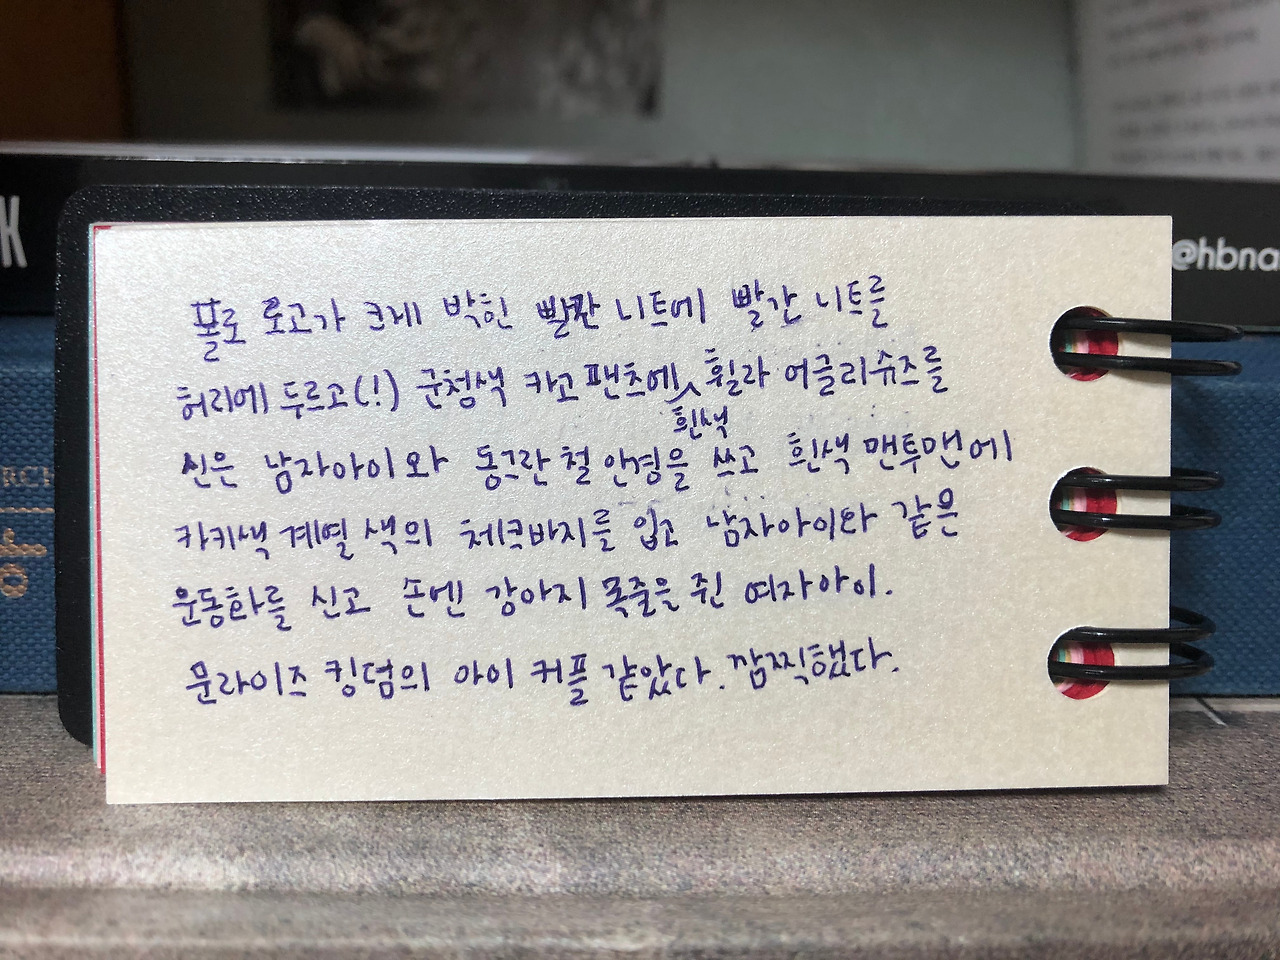 K
@hbna
폴로 로고가 크게 박힌 빨간 니트에 빨간 니트를
허리에 두르고(!) 군청색 카고 팬츠에 흰색 휠라 어글리슈즈를
신은 남자아이와 동그란 철 안경을 쓰고 흰색 맨투맨에
카키색 계열 색의 체크바지를 입고 남자아이와 같은
운동화를 신고 손엔 강아지 목줄을 쥔 여자아이.
문라이즈 킹덤의 아이 커플 같았다. 깜찍했다.
RCH